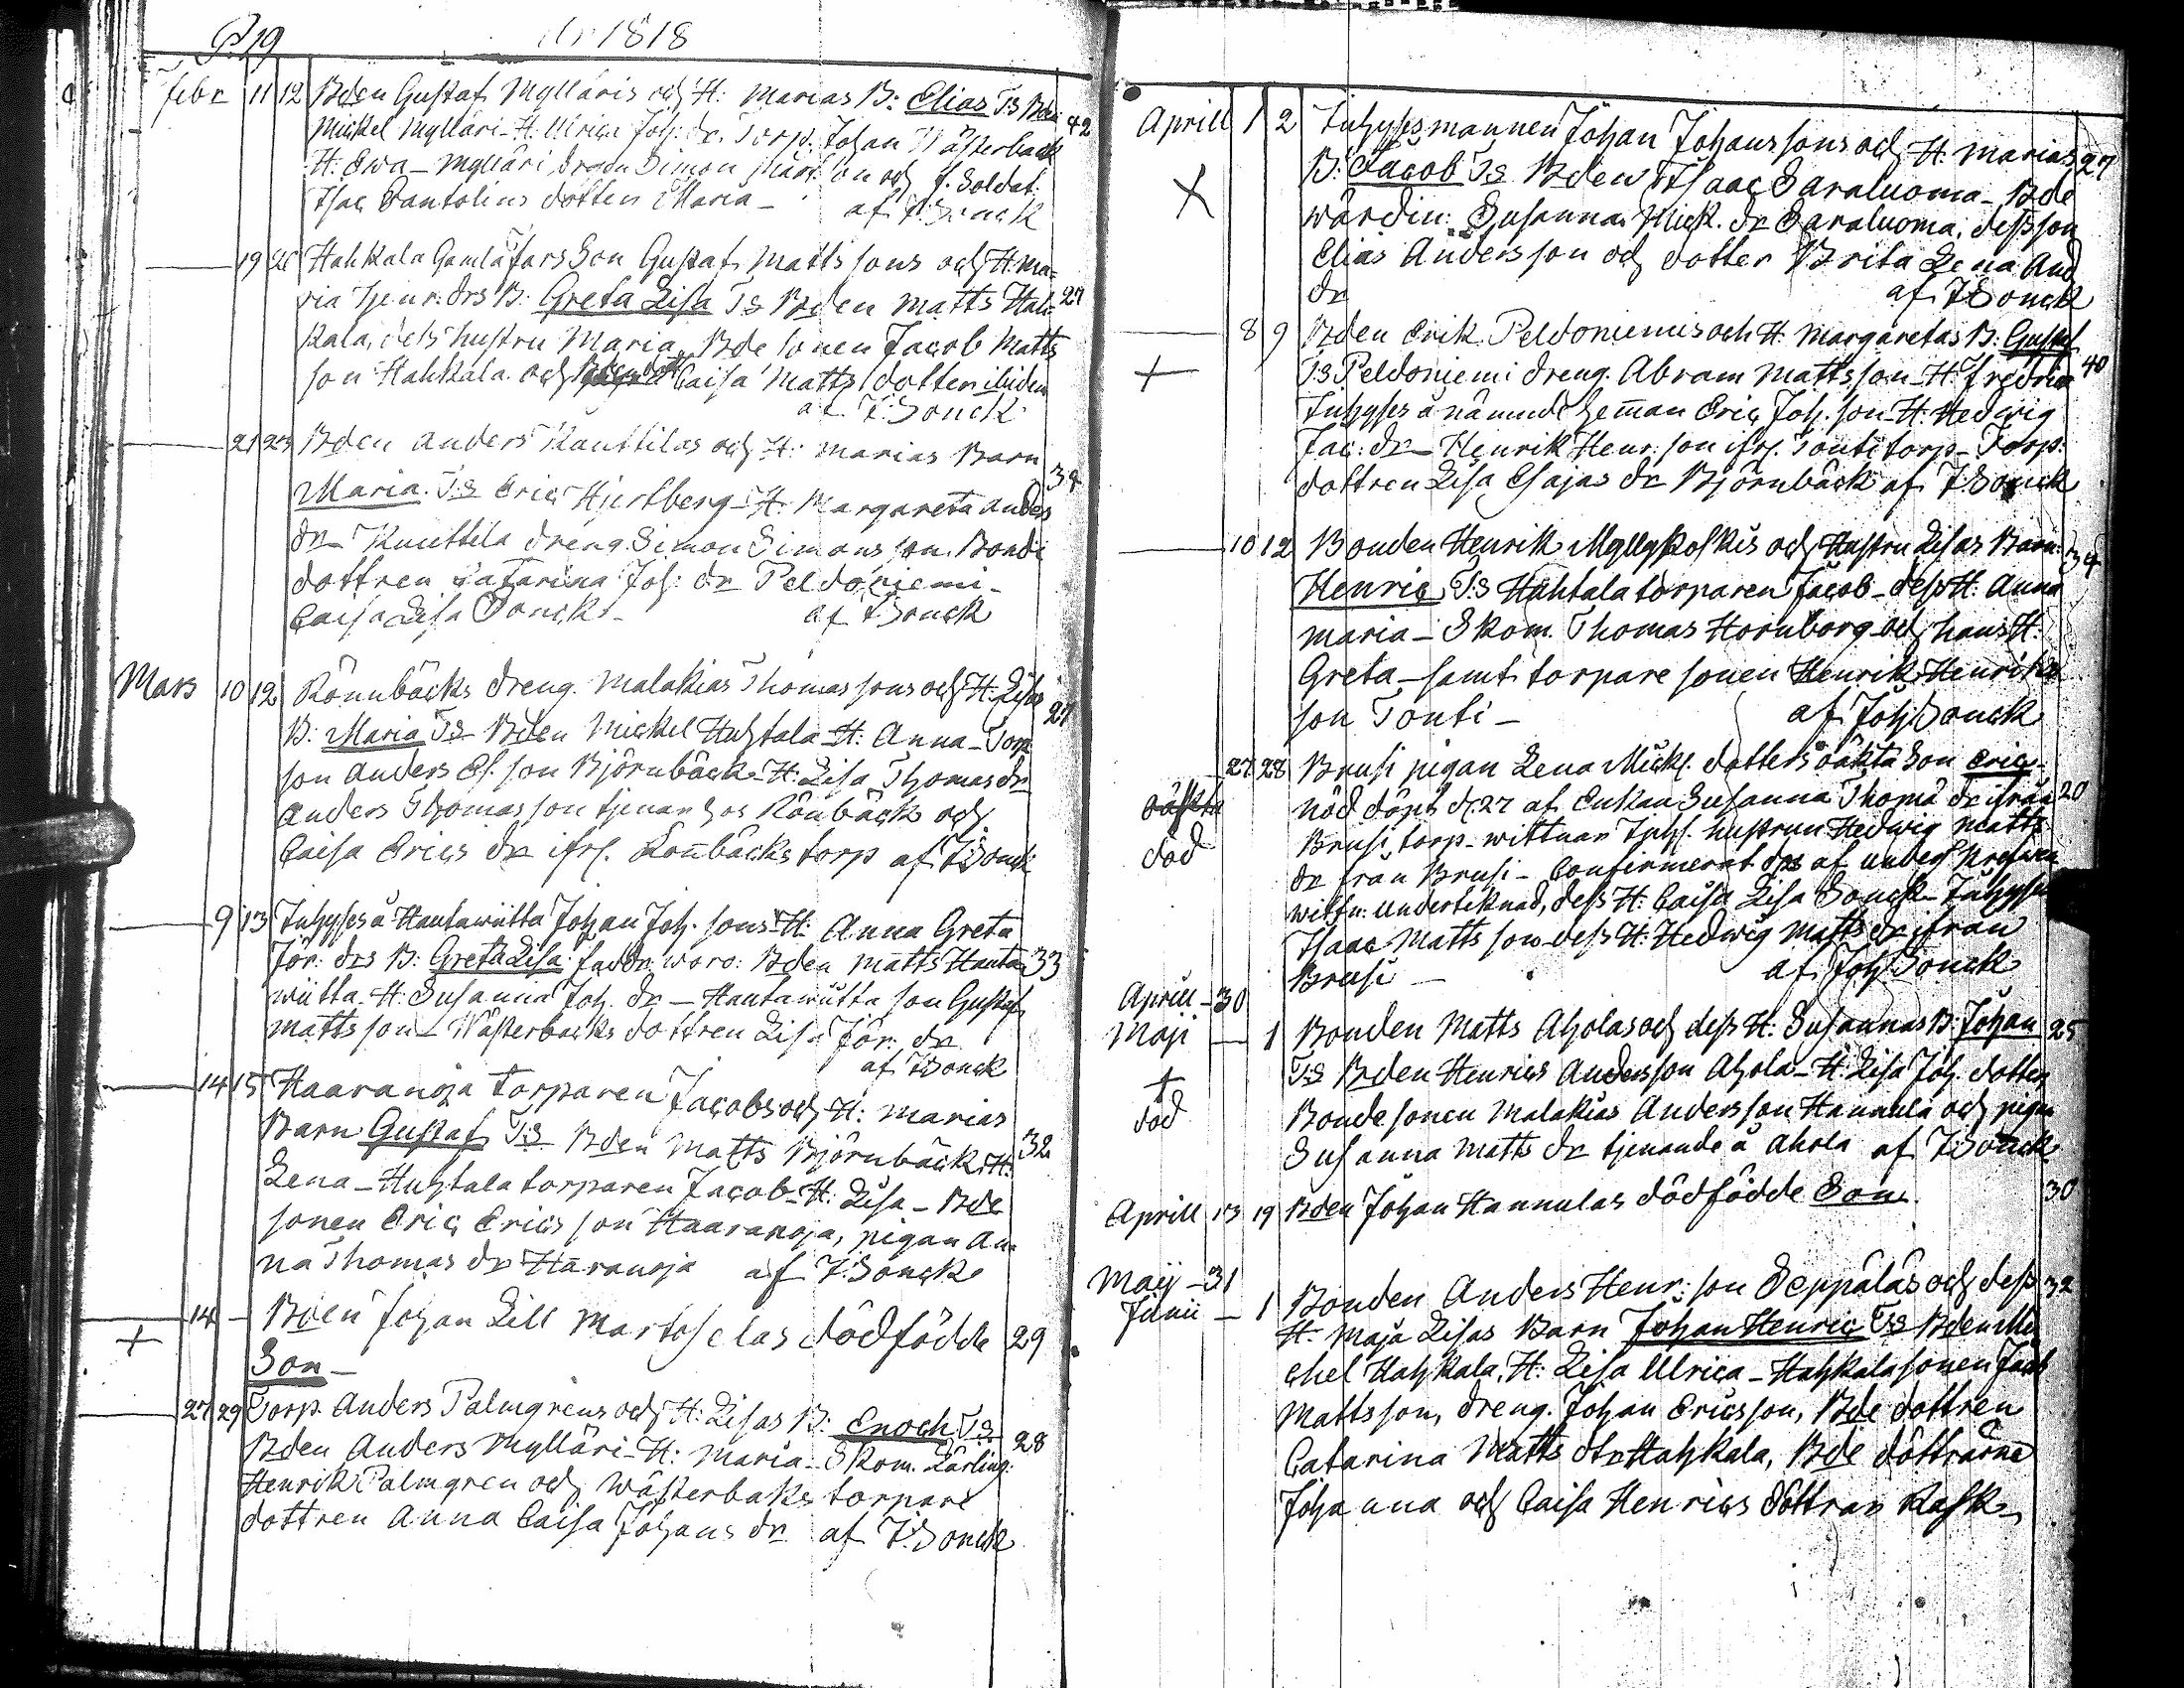 P. 19 År 1818
febr 11 12 Bden Gustaf Mylläris och H: Marias B: Elias T:s Bden 42
Mickel Mylläri - H. Ulrica Joh: dr. Torp. Johan Wästerback
H: Ewa - Mylläri dreng Simon Matts son och f. Soldat:
Isac Dantolins dotter Maria - af J Sonck
19 20 Hahkala Gamlafars Son Gustaf Matts sons och H. Ma=
ria Henr: drs B: Greta Lisa T:s Bden Matts Hah= 27
kala, dess hustru Maria, Bde sonen Jacob Matts
son Hahkala och Caisa Matts dotter ibidem
af J. Sonck
21 23 Bden Anders Knuttilas och H: Marias Barn
Maria. T:s Eric Hjertberg - H. Margareta Anders 34
dr - Knuttila dreng. Simon Simons son. Bonde
dottren Catarina Joh: dr Peldoniemi -
Caisa Lisa Sonck - af J Sonck
Mars 10 12 Rönnbäcks dreng. Malakias Thomas sons och H: Lisas
B: Maria T:s Bden Mickel Huhtala - H: Anna - Torp 27
son Anders Es. son Björnbäck - H: Lisa Thomas dr
Anders Thomas son tjenar hos Rönbäck och
Caisa Erics dr ifr. Rönbäcks torp af J Sonck
9 13 Inhyses å Hautawiitta Johan Joh. sons H: Anna Greta
Jör: drs B: Greta Lisa: faddr. woro: Bden Matts Hauta 33
wiitta - H: Susanna Joh. dr - Hautawiitta son Gustaf
Matts son - Wästerbacks dottren Lisa Jör: dr
af J Sonck
14 15 Haaranoja torparen Jacobs och H: Marias
Barn Gustaf T:s Bden Matts Björnbäck, H: 32
Lena - Huhtala torparen Jacob - H: Lisa - Bde
sonen Eric Erics son Haaranoja, pigan An=
na Thomas dr Haranoja af J. Sonck
14 - Bden Johan Lill Martoselas dödfödde 29
+
Son -
27 29 Torp. Anders Palmgrens och H: Lisas B: Enoch T:s 28
Bden Anders Mylläri - H: Maria - Skom. Lärling:
Henrik Palmgren och Wästerbaks torpare
dottren Anna Caisa Johans dr af J. Sonck
Aprill 1 2 Inhysesmannen Johan Johans sons och H. Marias 27
X B: Jacob T:s Bden Isaac Saraluoma - Bde
wärdin: Susanna Mick. dr Saraluoma, dess son
Elias Anders son och dotter Brita Lena And
dr af J Sonck
8 9 Bden Erik Peldoniemis och H. Margaretas B: Gustaf
+ T:s Peldoniemi dreng. Abram Matts son - H. Fredrica 40
Inhyses å nämnde Hemman Eric Joh. son - H. Hedwig
Jac: dr - Henrik Henr: son ifr. Tonti torp - Torp:
dottren Lisa Esajas dr Björnbäck af J Sonck
10 12 Bonden Henrik Myllykoskis och Hustru Lisas Barn: 34
Henric T:s Hahtala torparen Jacob - dess H: Anna
Maria - Skom. Thomas Hornborg och hans H:
Greta - samt torpare sonen Henrik Henriks
son Tonti - af Joh Sonck
27 28 Brusi pigan Lena Mick. dotters oäkta Son Eric
oäkta nöd döpt d: 27 af Enkan Susanna Thoma dr ifrån 20
död Brusi torp - wittnar Inhs. hustrun Hedwig Matts
dr från Brusi - Confirmerat af
wittn: undertecknad, dess H: Caisa Lisa Sonck - Inhyses
Isaac Matts son - dess H: Hedwig Matts dr ifrån
Brusi - af Joh Sonck
Aprill - 30
Maji - 1 Bonden Matts Aholas och dess H: Susannas B: Johan 25
+ T:s Bden Henrics Andersson Ahola - H: Lisa Joh. dotter
död Bonde sonen Malakias Anders son Hannula och pigan
Susanna Matts dr tjenande å Ahola af J Sonck
Aprill 13 19 Bden Johan Hannulas dödfödde Son. 30
Maij - 31
Junii - 1 Bonden Anders Henr: son Seppäläs och dess 32
H: Maja Lisas Barn Johan Henric T:s Bden Mi
chel Hahkala, H: Lisa Ulrica - Hahkala sonen Jacob
Matts son, dreng. Johan Erics son, Bde dottren
Catarina Matts dr Hahkala, Bde döttrarne
Johanna och Caisa Henrics döttrar Rask